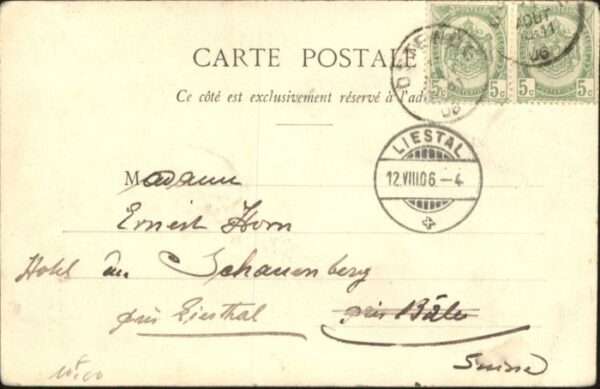 CARTE POSTALE
Ce côté est exclusivement réservé à l'ad
OSTENDE
06
AOUT
11
06
5c 5c 5c 5c
LIESTAL
12.VIII.06.-4
Madame
Ernest Horn
Hotel du Schauenberg
près Liesthal près Bâle
Suisse